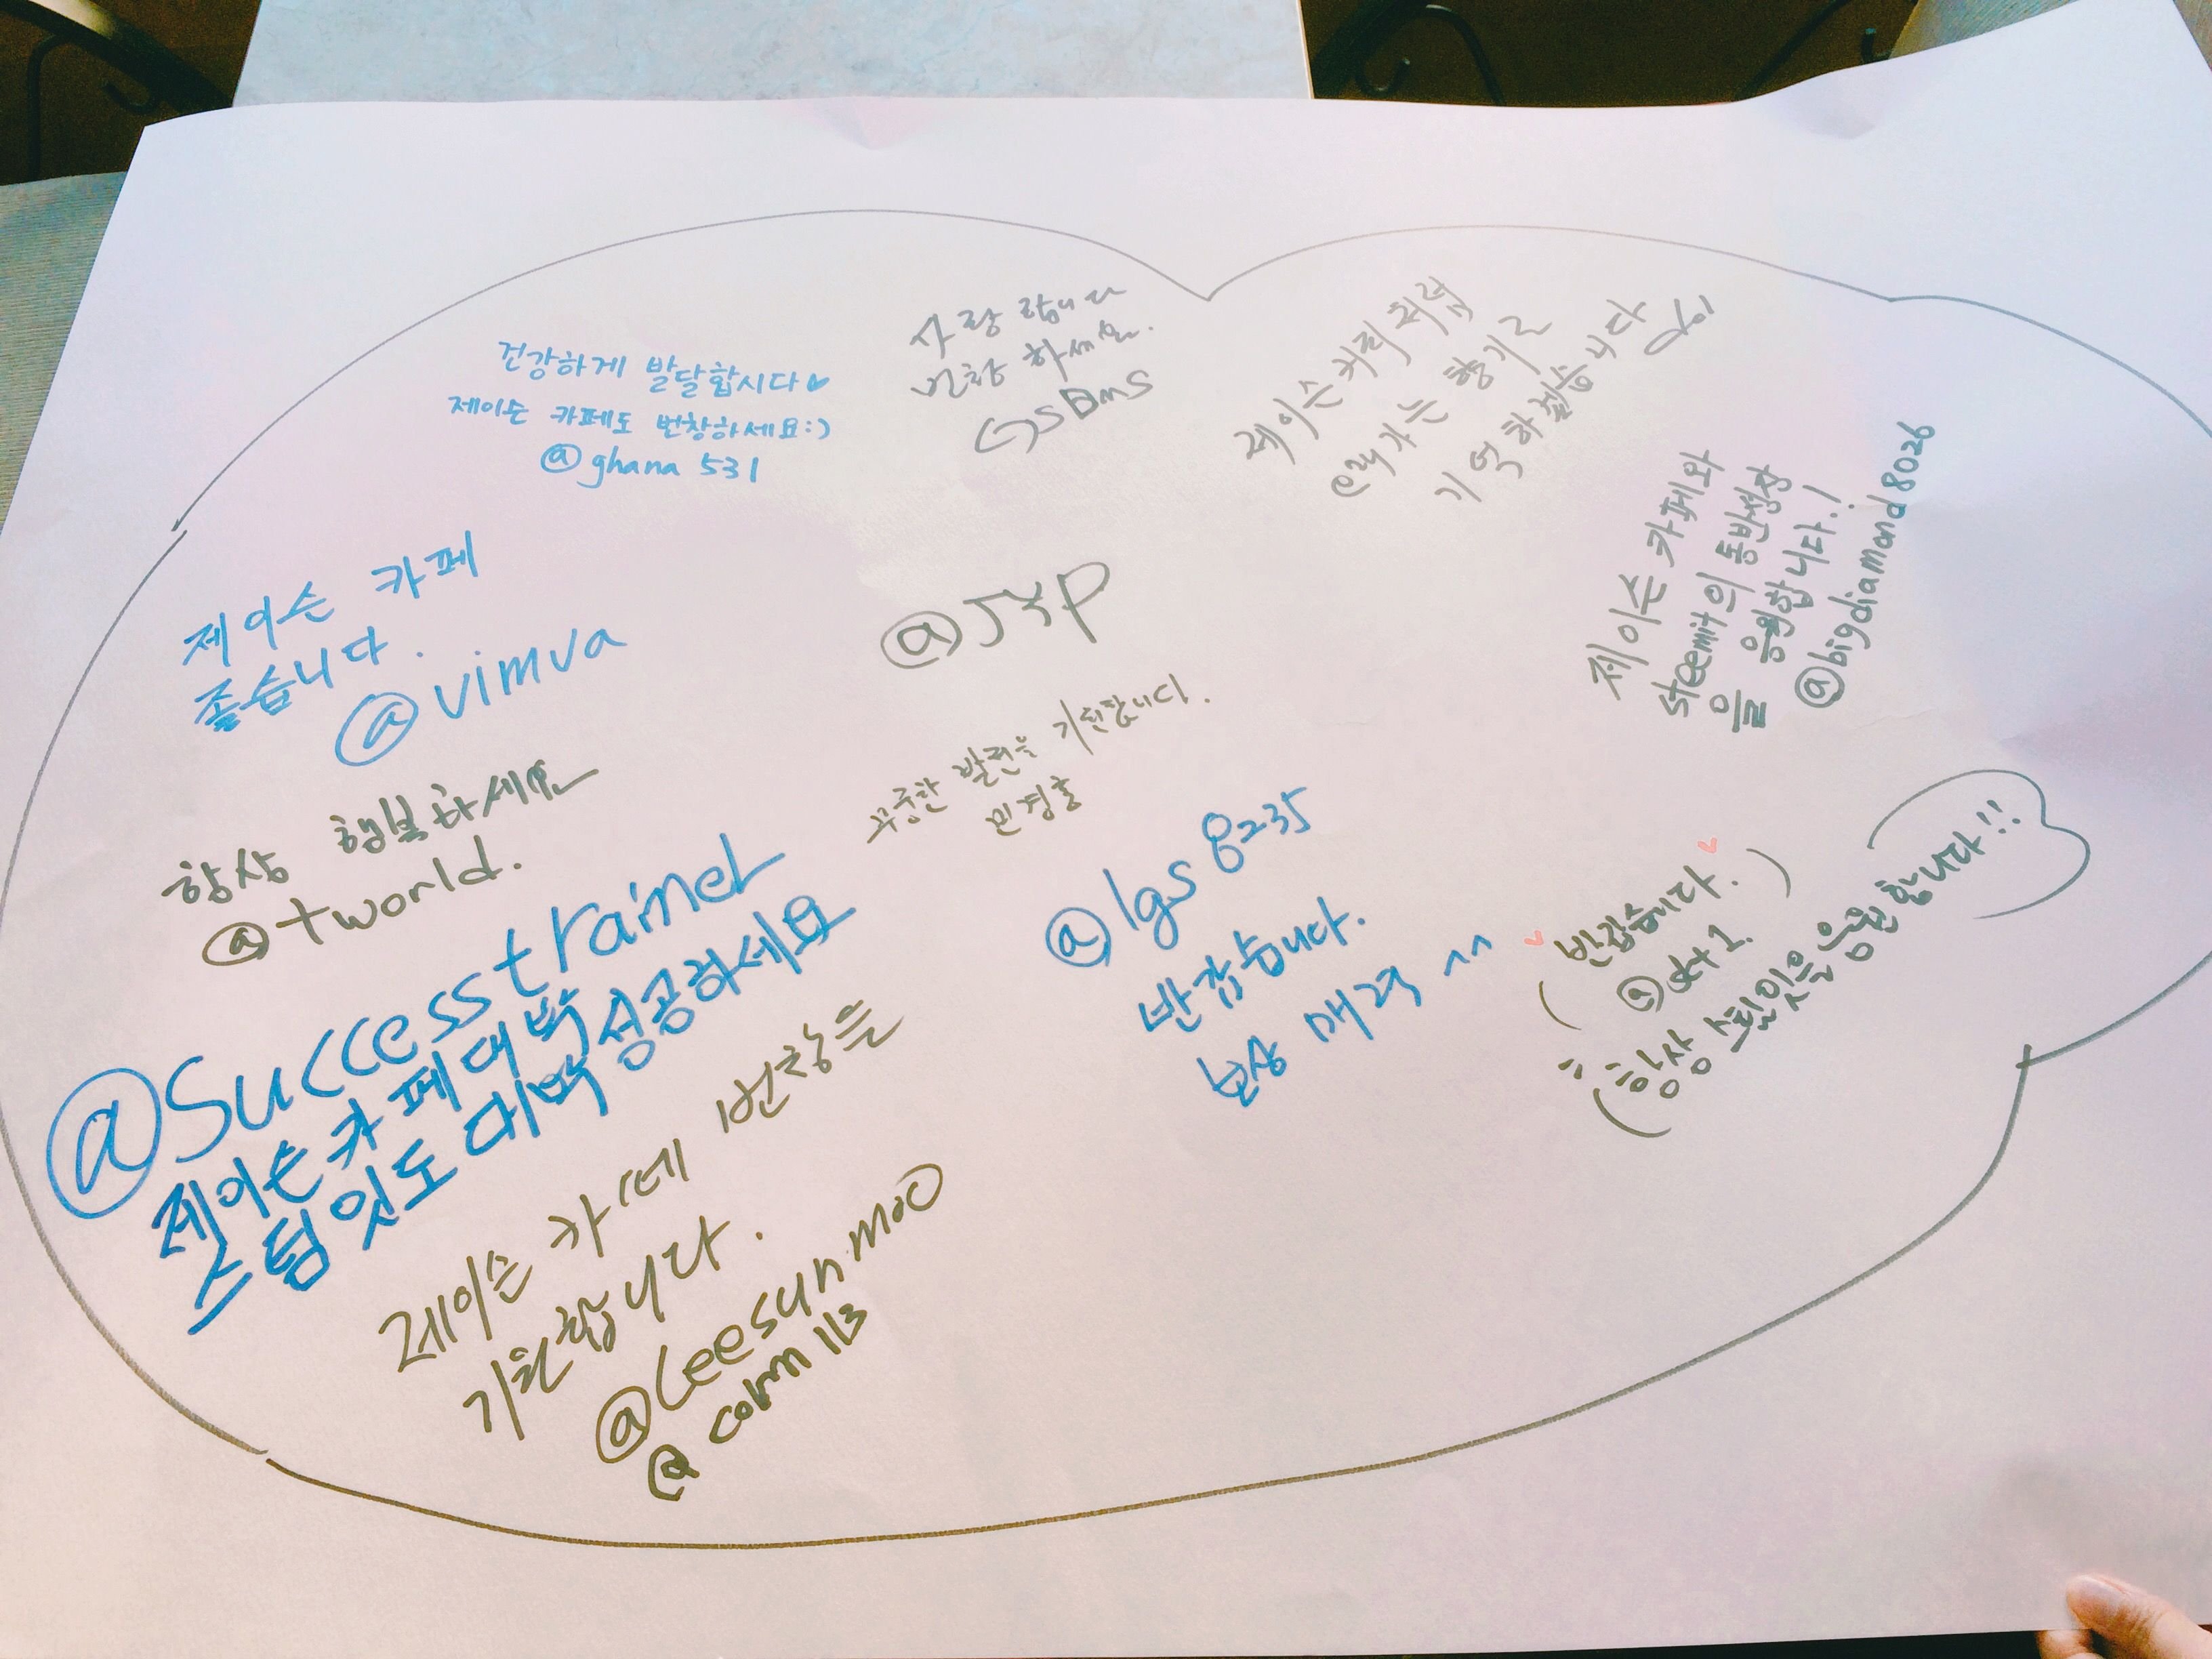 건강하게 발달합시다
제이슨 카페도 번창하세요:)
@ghana531
사랑합니다
번창하세요.
GSDMS
제이슨 커피처럼
가는 향기로
기억하겠습니다
제이슨 카페와
steemit의 동반성장
을 응원합니다.!
@bigdiamond8026
제이슨 카페
좋습니다.
@vimva
@JYP
꾸준한 발전을 기원합니다.
민경호
항상 행복하세요
@tworld.
@Successtrainer
제이슨카페대박
스팀잇도 대박성공하세요
@lgs8235
반갑습니다.
보상 매력 ^^
(반갑습니다.)
(항상 스팀잇을 응원합니다!!
제이슨 카페 번창을
기원합니다.
@leesunmoo
@corn113